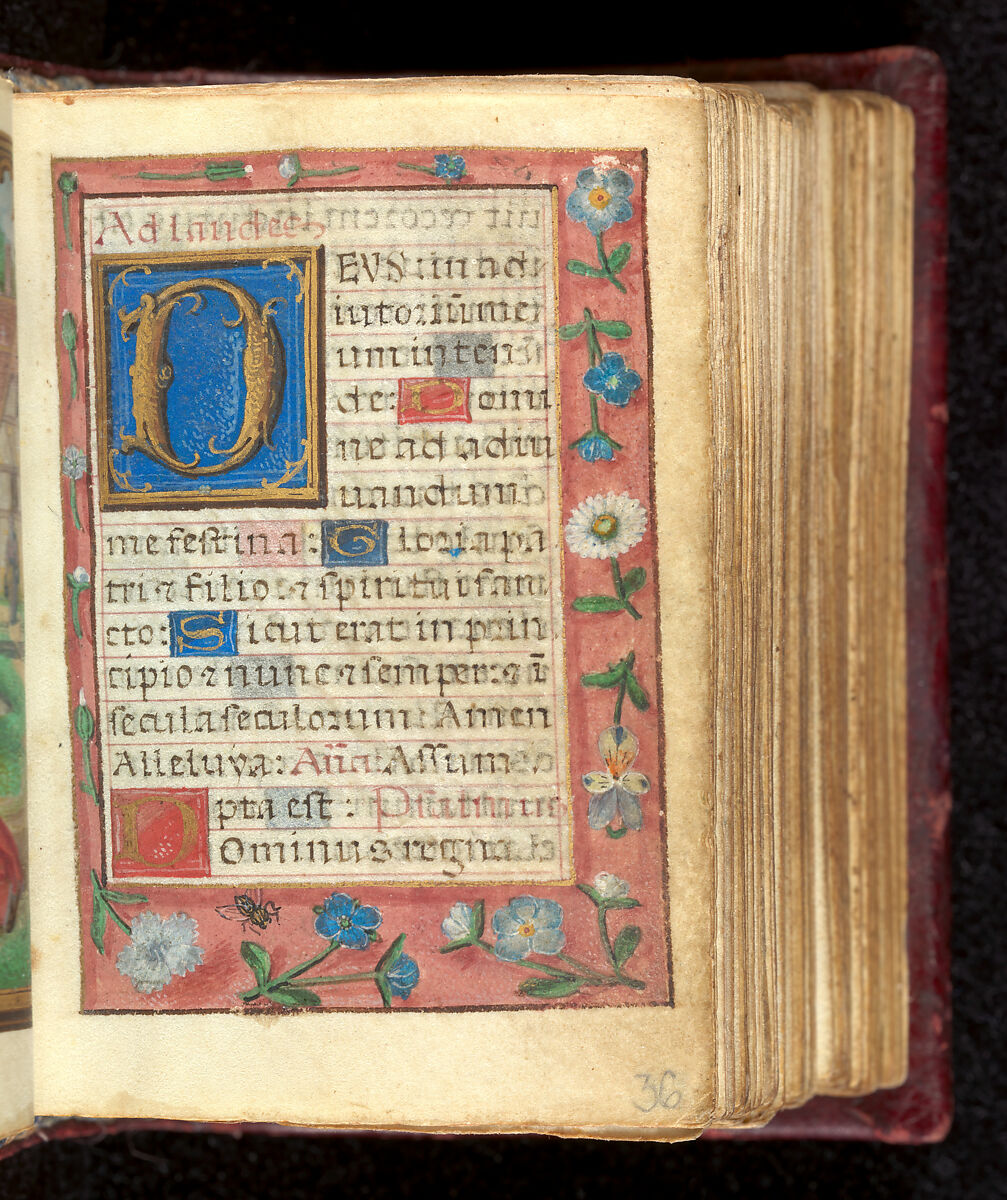 Ad laudes
DEVS in ad
iutoriū me
um inten
de: Domi
ne ad adiu
uandum
me festina: Gloria pa
tri ⁊ filio ⁊ spiritui san
cto: Sicut erat in prin
cipio ⁊ nunc ⁊ semper: ⁊ ī
secula seculorum Amen
Alleluya: Añа Assum
pta est: Psalmus
Dominus regna
36